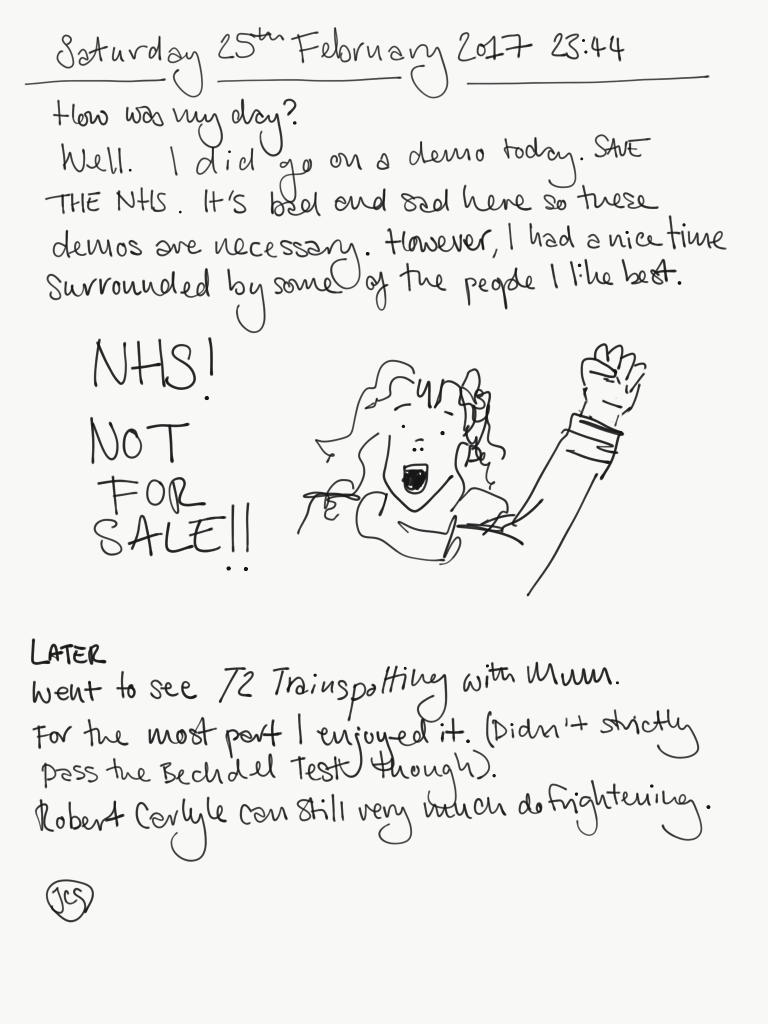 Saturday 25th February 2017 23:44
How was my day?
Well. I did go on a demo today. SAVE
THE NHS. It's bad and sad here so these
demos are necessary. However, I had a nice time
surrounded by some of the people I like best.
NHS!
NOT
FOR
SALE!!
LATER
Went to see T2 Trainspotting with Mum.
For the most part I enjoyed it. (Didn't strictly
pass the Bechdel Test though).
Robert Carlyle can still very much do frightening.
JCS